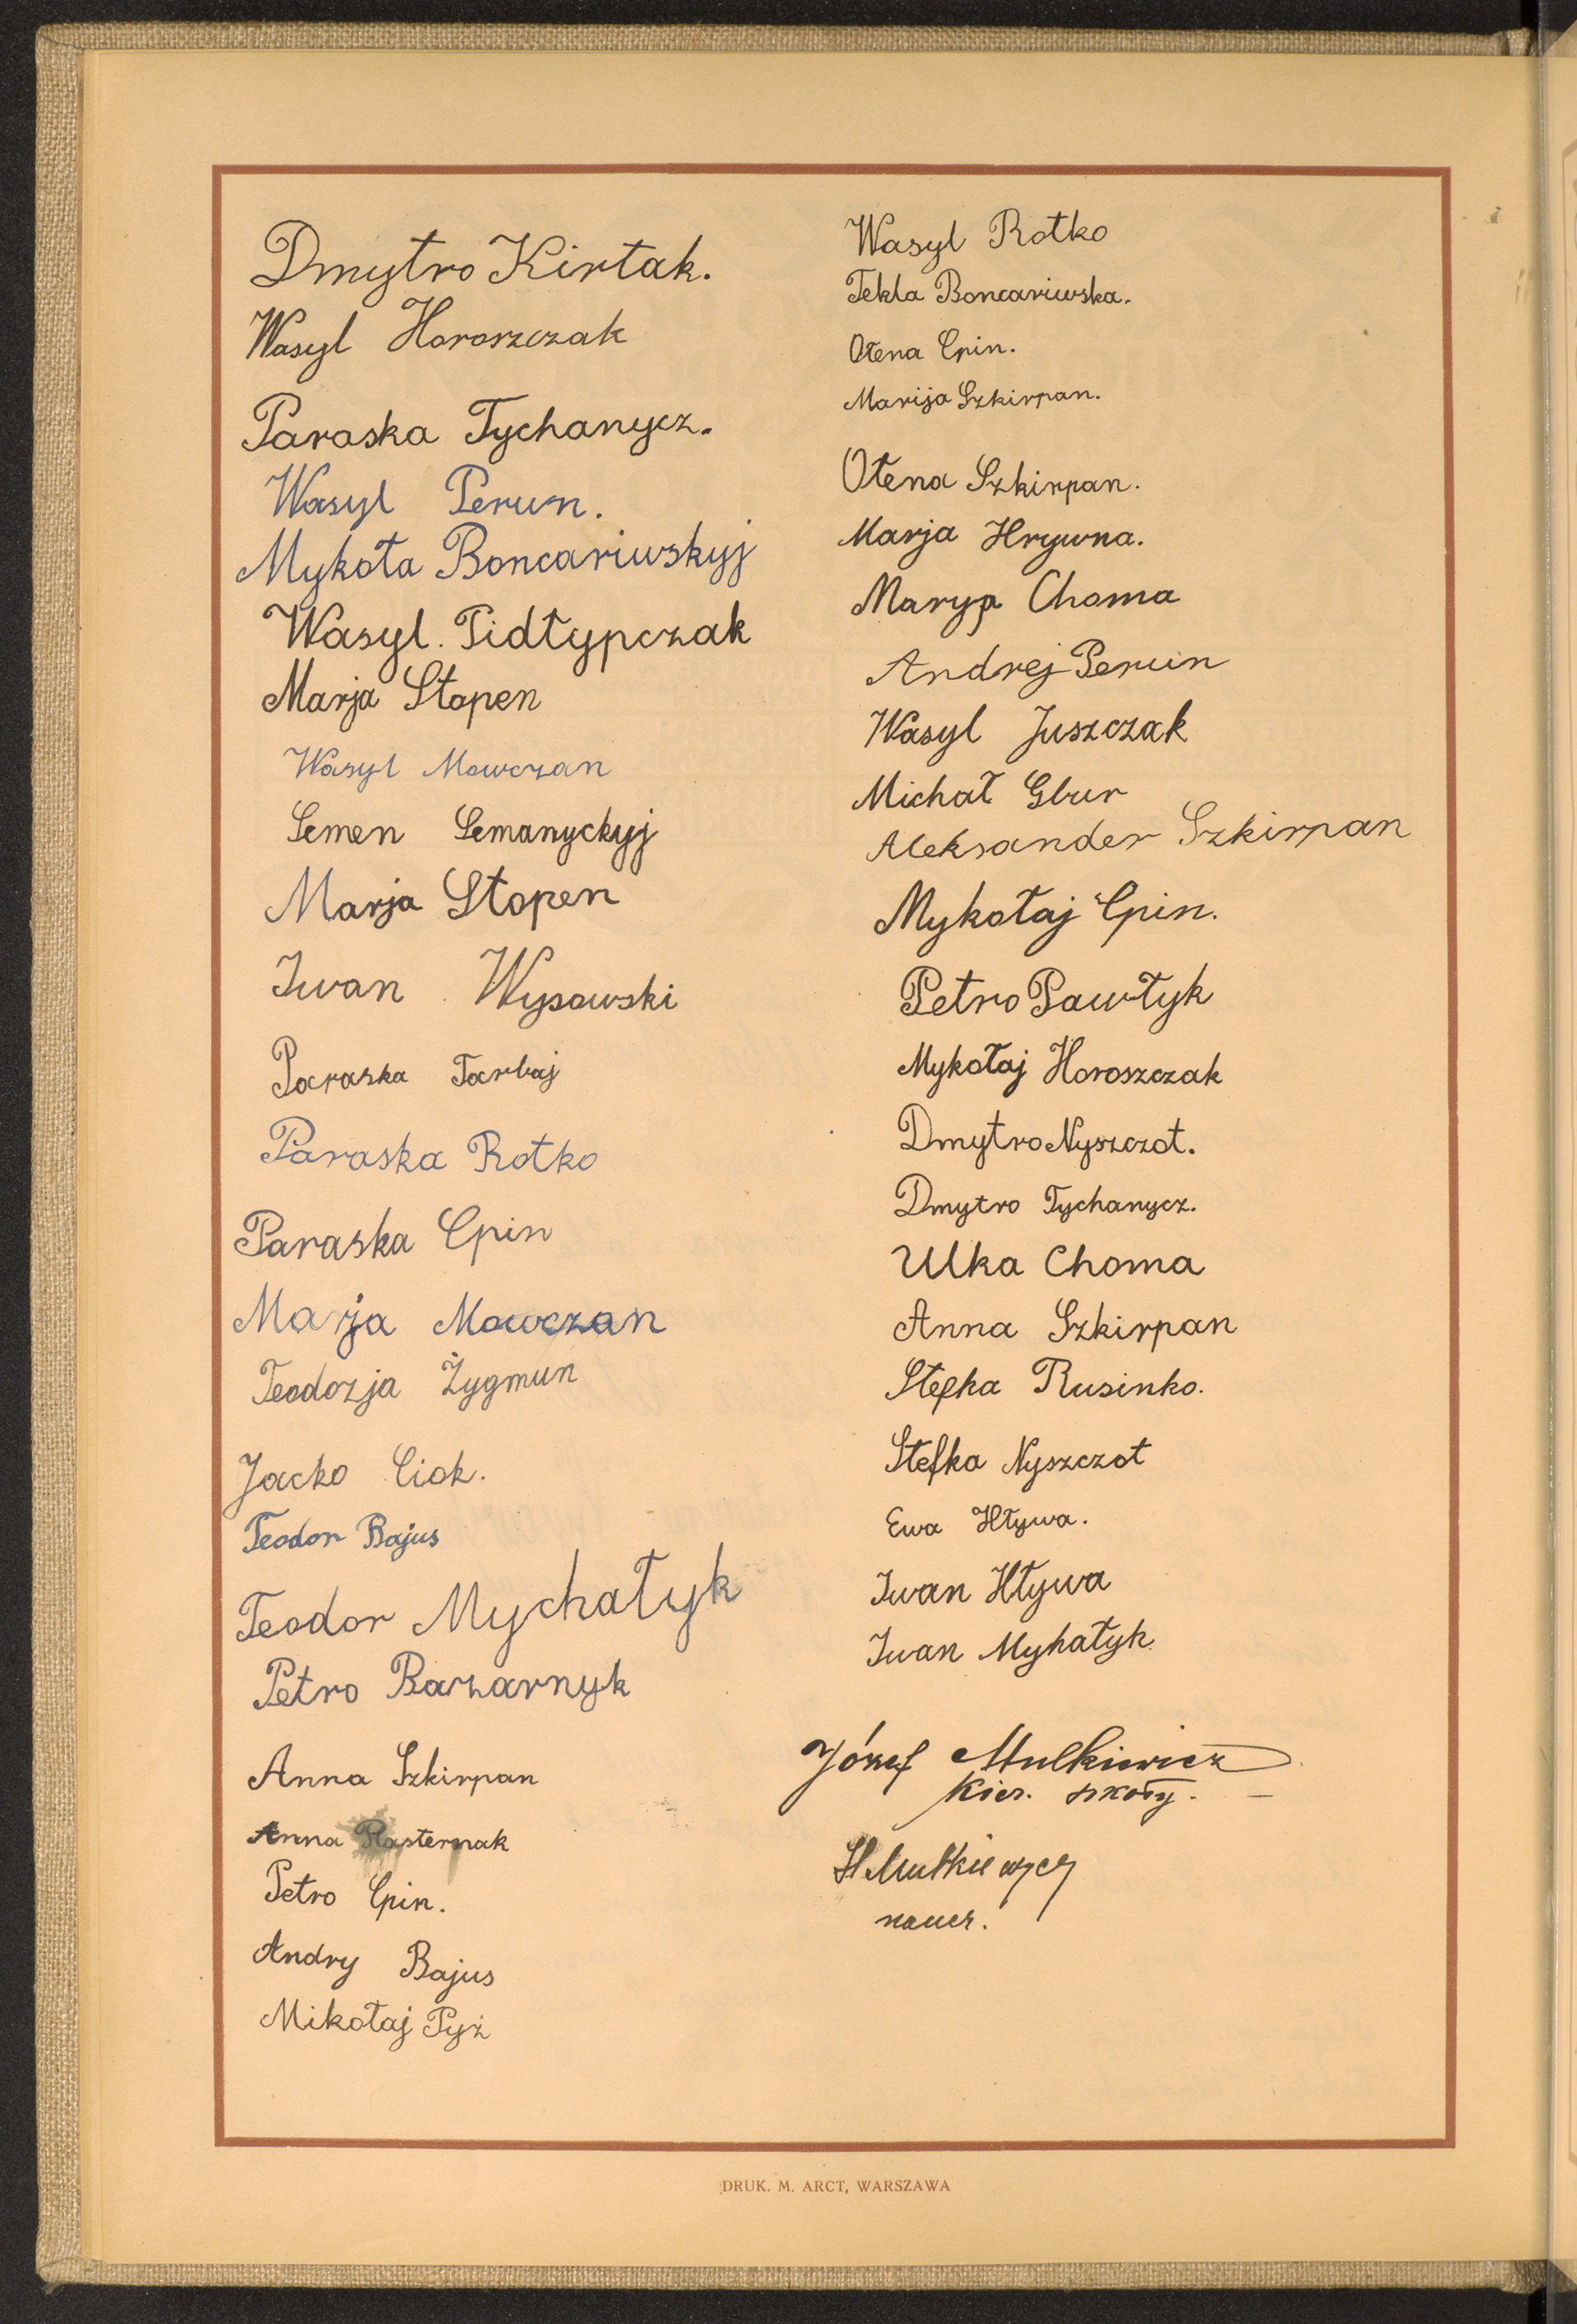 Dmytro Kirtak.
Wasyl Horoszczak
Paraska Tychanycz.
Wasyl Perun.
Mykoła Boncariwskyj
Wasyl. Pidłypczak
Marja Stopen
Wasyl Mowczan
Semen Semanyckyj
Marja Stopen
Iwan Wysowski
Paraska Tarbaj
Paraska Rotko
Paraska Cpin
Marja Mowczan
Teodozja Żygmun
Jacko Ciok.
Teodor Bajus
Teodor Mychałyk
Petro Bazarnyk
Anna Szkirpan
Anna Pasternak
Petro Cpin.
Andry Bajus
Mikołaj Pyż
Wasyl Rotko
Tekla Boncariwska.
Ołena Cpin.
Marija Szkirpan.
Ołena Szkirpan.
Marja Hrywna.
Maryja Choma
Andrej Perun
Wasyl Juszczak
Michał Gbur
Aleksander Szkirpan
Mykołaj Cpin.
Petro Pawłyk
Mykołaj Horoszczak
Dmytro Nyszczot.
Dmytro Tychanycz.
Ulka Choma
Anna Szkirpan
Stefka Rusinko.
Stefka Nyszczot
Ewa Hływa.
Iwan Hływa
Iwan Myhałyk
Józef Mulkiewicz
Kier. szkoły.
naucz.
DRUK. M. ARCT, WARSZAWA